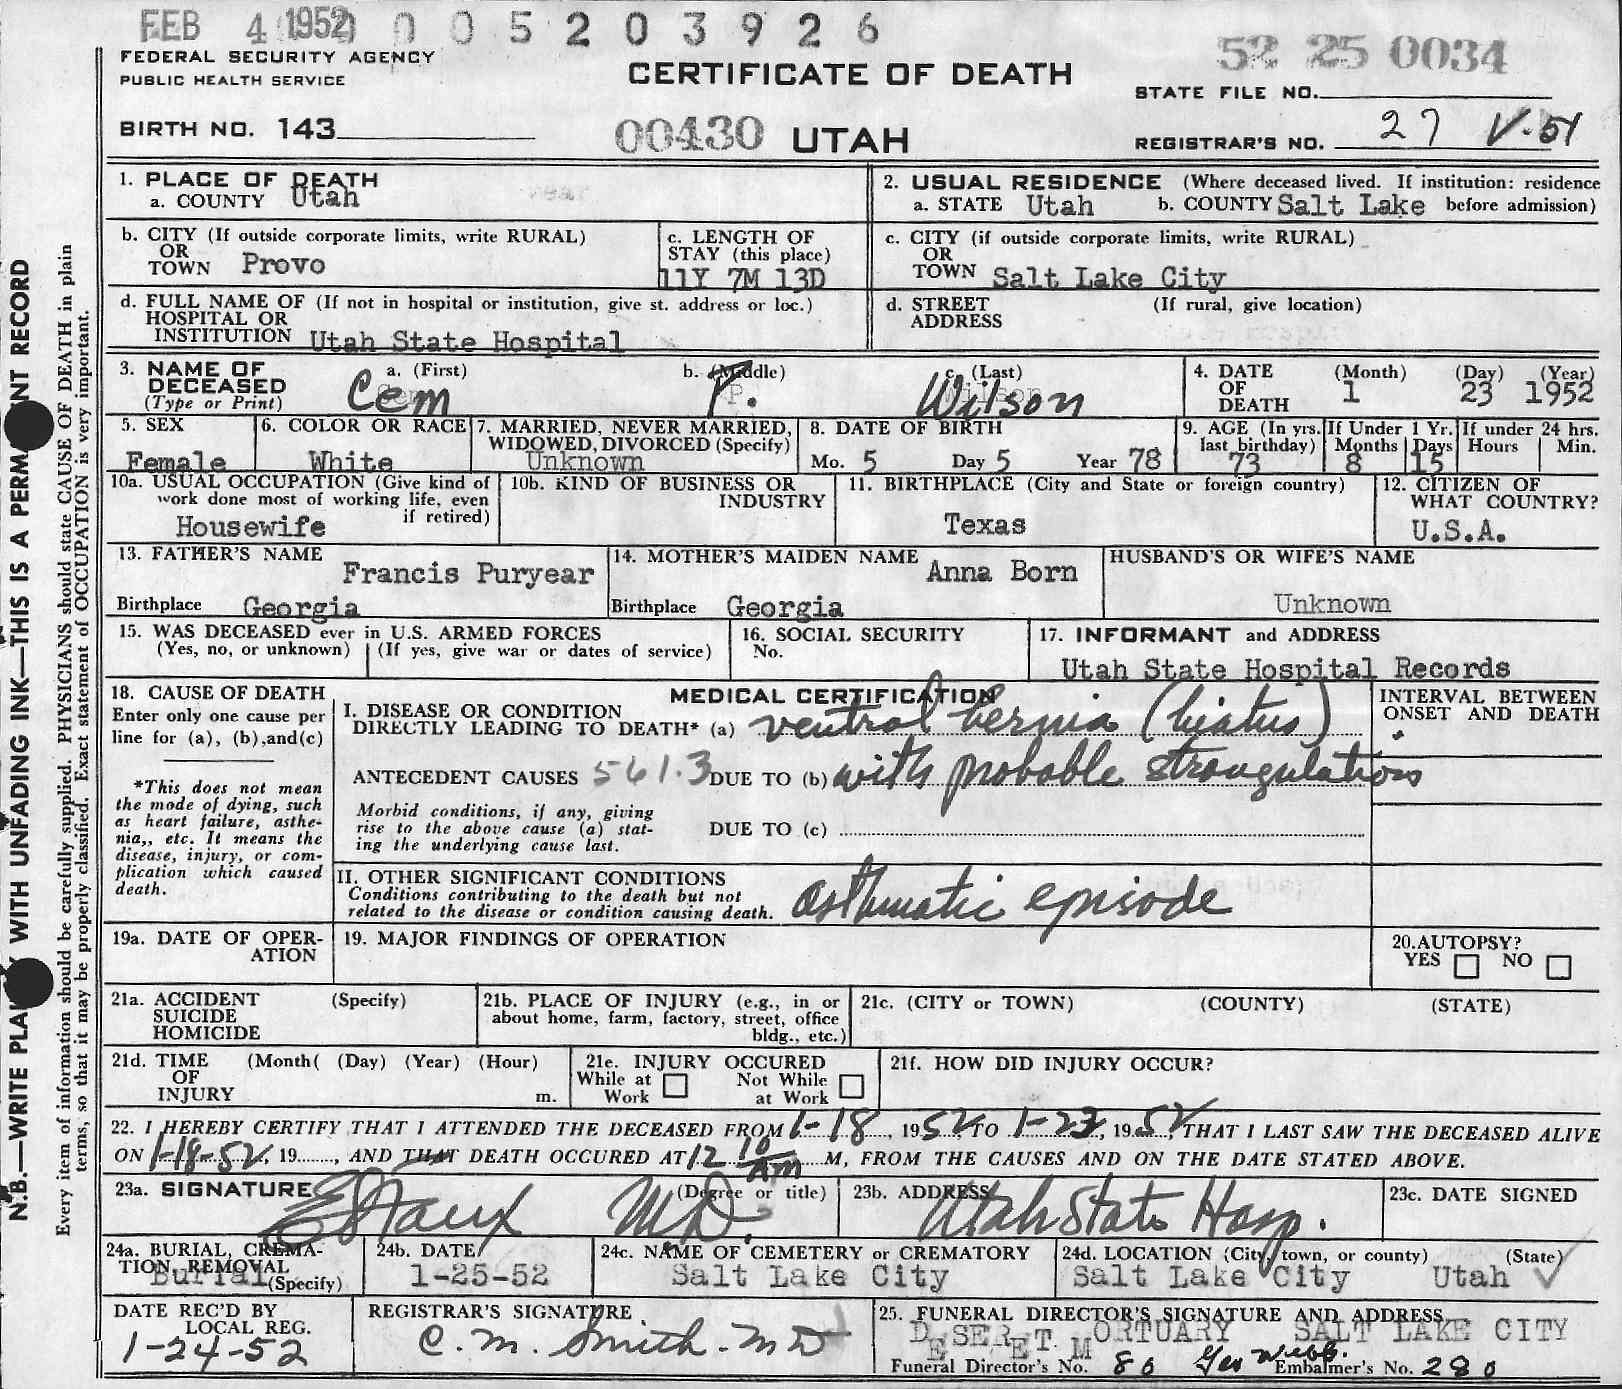 FEB 4 1952 0 0 5 2 0 3 9 2 6
52 25 0034
FEDERAL SECURITY AGENCY
PUBLIC HEALTH SERVICE
CERTIFICATE OF DEATH
STATE FILE NO.
BIRTH NO. 143
00430 UTAH
REGISTRAR'S NO. 27 V-51
1. PLACE OF DEATH
a. COUNTY Utah
2. USUAL RESIDENCE (Where deceased lived. If institution: residence
a. STATE Utah b. COUNTY Salt Lake before admission)
b. CITY (If outside corporate limits, write RURAL)
OR
TOWN Provo
c. LENGTH OF
STAY (this place)
11Y 7M 13D
c. CITY (if outside corporate limits, write RURAL)
OR
TOWN Salt Lake City
d. FULL NAME OF (If not in hospital or institution, give st. address or loc.)
HOSPITAL OR
INSTITUTION Utah State Hospital
d. STREET (If rural, give location)
ADDRESS
3. NAME OF
DECEASED
(Type or Print)
a. (First) b. (Middle) c. (Last)
Cem P. Wilson
4. DATE (Month) (Day) (Year)
OF
DEATH 1 23 1952
5. SEX
Female
6. COLOR OR RACE
White
7. MARRIED, NEVER MARRIED,
WIDOWED, DIVORCED (Specify)
Unknown
8. DATE OF BIRTH
Mo. 5 Day 5 Year 78
9. AGE (In yrs.
last birthday)
73
If Under 1 Yr.
Months Days
8 15
If under 24 hrs.
Hours Min.
10a. USUAL OCCUPATION (Give kind of
work done most of working life, even
if retired)
Housewife
10b. KIND OF BUSINESS OR
INDUSTRY
11. BIRTHPLACE (City and State or foreign country)
Texas
12. CITIZEN OF
WHAT COUNTRY?
U.S.A.
13. FATHER'S NAME
Francis Puryear
Birthplace Georgia
14. MOTHER'S MAIDEN NAME
Anna Born
Birthplace Georgia
HUSBAND'S OR WIFE'S NAME
Unknown
15. WAS DECEASED ever in U.S. ARMED FORCES
(Yes, no, or unknown) (If yes, give war or dates of service)
16. SOCIAL SECURITY
No.
17. INFORMANT and ADDRESS
Utah State Hospital Records
18. CAUSE OF DEATH
Enter only one cause per
line for (a), (b), and (c)
*This does not mean
the mode of dying, such
as heart failure, asthe-
nia,, etc. It means the
disease, injury, or com-
plication which caused
death.
MEDICAL CERTIFICATION
I. DISEASE OR CONDITION
DIRECTLY LEADING TO DEATH* (a) ventral hernia (hiatus)
ANTECEDENT CAUSES 561.3 DUE TO (b) with probable strangulation
Morbid conditions, if any, giving
rise to the above cause (a) stat-
ing the underlying cause last.
DUE TO (c)
INTERVAL BETWEEN
ONSET AND DEATH
II. OTHER SIGNIFICANT CONDITIONS
Conditions contributing to the death but not
related to the disease or condition causing death.
asthmatic episode
19a. DATE OF OPER-
ATION
19. MAJOR FINDINGS OF OPERATION
20. AUTOPSY?
YES NO
21a. ACCIDENT (Specify)
SUICIDE
HOMICIDE
21b. PLACE OF INJURY (e.g., in or
about home, farm, factory, street, office
bldg., etc.)
21c. (CITY or TOWN) (COUNTY) (STATE)
21d. TIME (Month( (Day) (Year) (Hour)
OF
INJURY m.
21e. INJURY OCCURED
While at Work Not While at Work
21f. HOW DID INJURY OCCUR?
22. I HEREBY CERTIFY THAT I ATTENDED THE DECEASED FROM 1-18, 1952, TO 1-23, 1952, THAT I LAST SAW THE DECEASED ALIVE
ON 1-18-52, 19......, AND THAT DEATH OCCURED AT 12 10 AM M, FROM THE CAUSES AND ON THE DATE STATED ABOVE.
23a. SIGNATURE (Degree or title)
M.D.
23b. ADDRESS
Utah State Hosp.
23c. DATE SIGNED
24a. BURIAL, CREMA-
TION, REMOVAL
Burial (Specify)
24b. DATE
1-25-52
24c. NAME OF CEMETERY or CREMATORY
Salt Lake City
24d. LOCATION (City, town, or county) (State)
Salt Lake City Utah
DATE REC'D BY
LOCAL REG.
1-24-52
REGISTRAR'S SIGNATURE
C. M. Smith - M D
25. FUNERAL DIRECTOR'S SIGNATURE AND ADDRESS
DESERET MORTUARY SALT LAKE CITY
Funeral Director's No. 80 Geo Webb. Embalmer's No. 280
N.B.—WRITE PLAINLY WITH UNFADING INK—THIS IS A PERMANENT RECORD
Every item of information should be carefully supplied. PHYSICIANS should state CAUSE OF DEATH in plain
terms, so that it may be properly classified. Exact statement of OCCUPATION is very important.